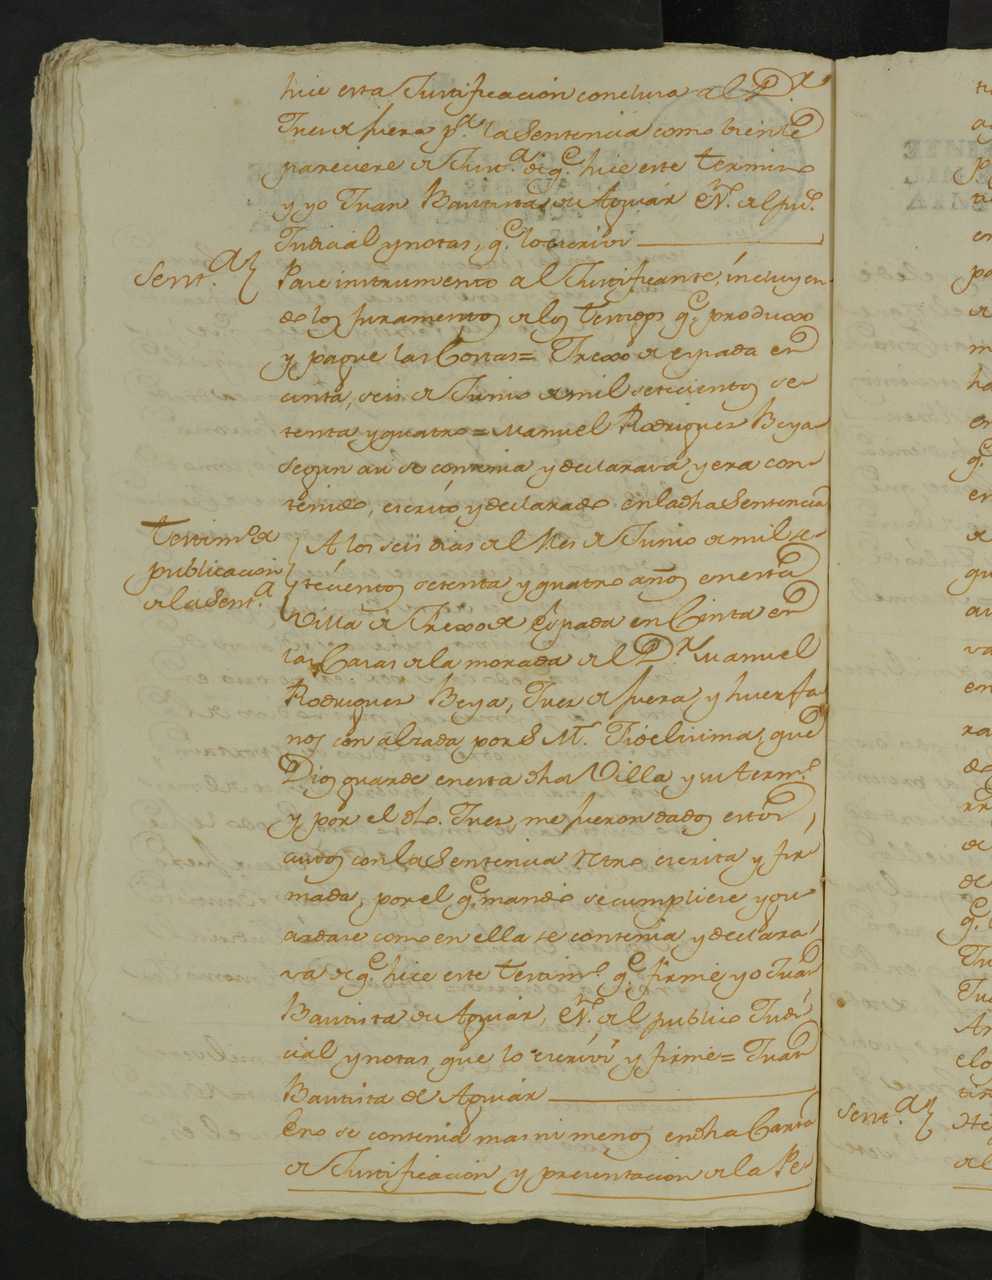 hice esta Justificacion conclusa al D.r
Juez de fuera p.a la Sentencia como bien le
pareciere de Just.a de q.e hice este termino
y yo Juan Bautista de Aguiár EN.o del pu.co
Judicial y notas, q.e lo escriví
Sent.a
Pase instrumento al Justificante, incluyen
do los juramentos de los testigos q.e produxo
y pague las Costas= Frexo de espada en
cinta, seis de Junio de mil setecientos se-
tenta y quatro= Manuel Rodrigues Beya-
segun asi se contenia y declarava, y era con-
tenido, escrito y declarado en la dha Sentencia
Testim.o de
publicacion
de la Sent.a
A los seis dias del Mes de Junio de mil se-
tecientos setenta y quatro años en esta
Villa de Frexo de Espada en Cinta en
las Casas de la morada del D.r Manuel
Rodrigues Beya, Juez de fuera, y huerfa
nos con alzada, por S M. Fidelisima, que
Dios guarde en esta dha Villa y su term.o
y por el dho. Juez, me fueron dados estos
autos con la Sentencia retro escrita y fir
mada, por el q.e mandó se cumpliese y gu
ardase como en ella se contenia y declara
va de q.e hice este testim.o q.e firmé yo Juan
Bautista de Aguiár, EN.o del publico Judi
cial y notas, que lo escriví y firmé= Juan
Bautista de Aguiár
Eno se contenia mas ni menos en dha Carta
de Justificacion y presentacion de la Pe-
Sent.a